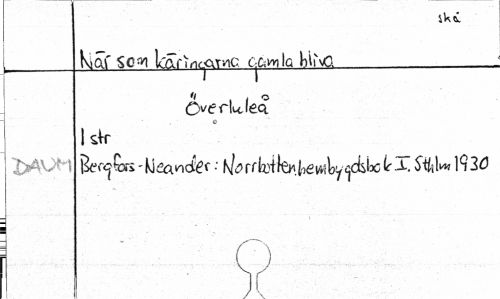 ská
När som käringarna gamla bliva
Överluleå
1 str
DAUM Bergfors-Neander: Norrbottens hembygdsbok I. Sthlm 1930